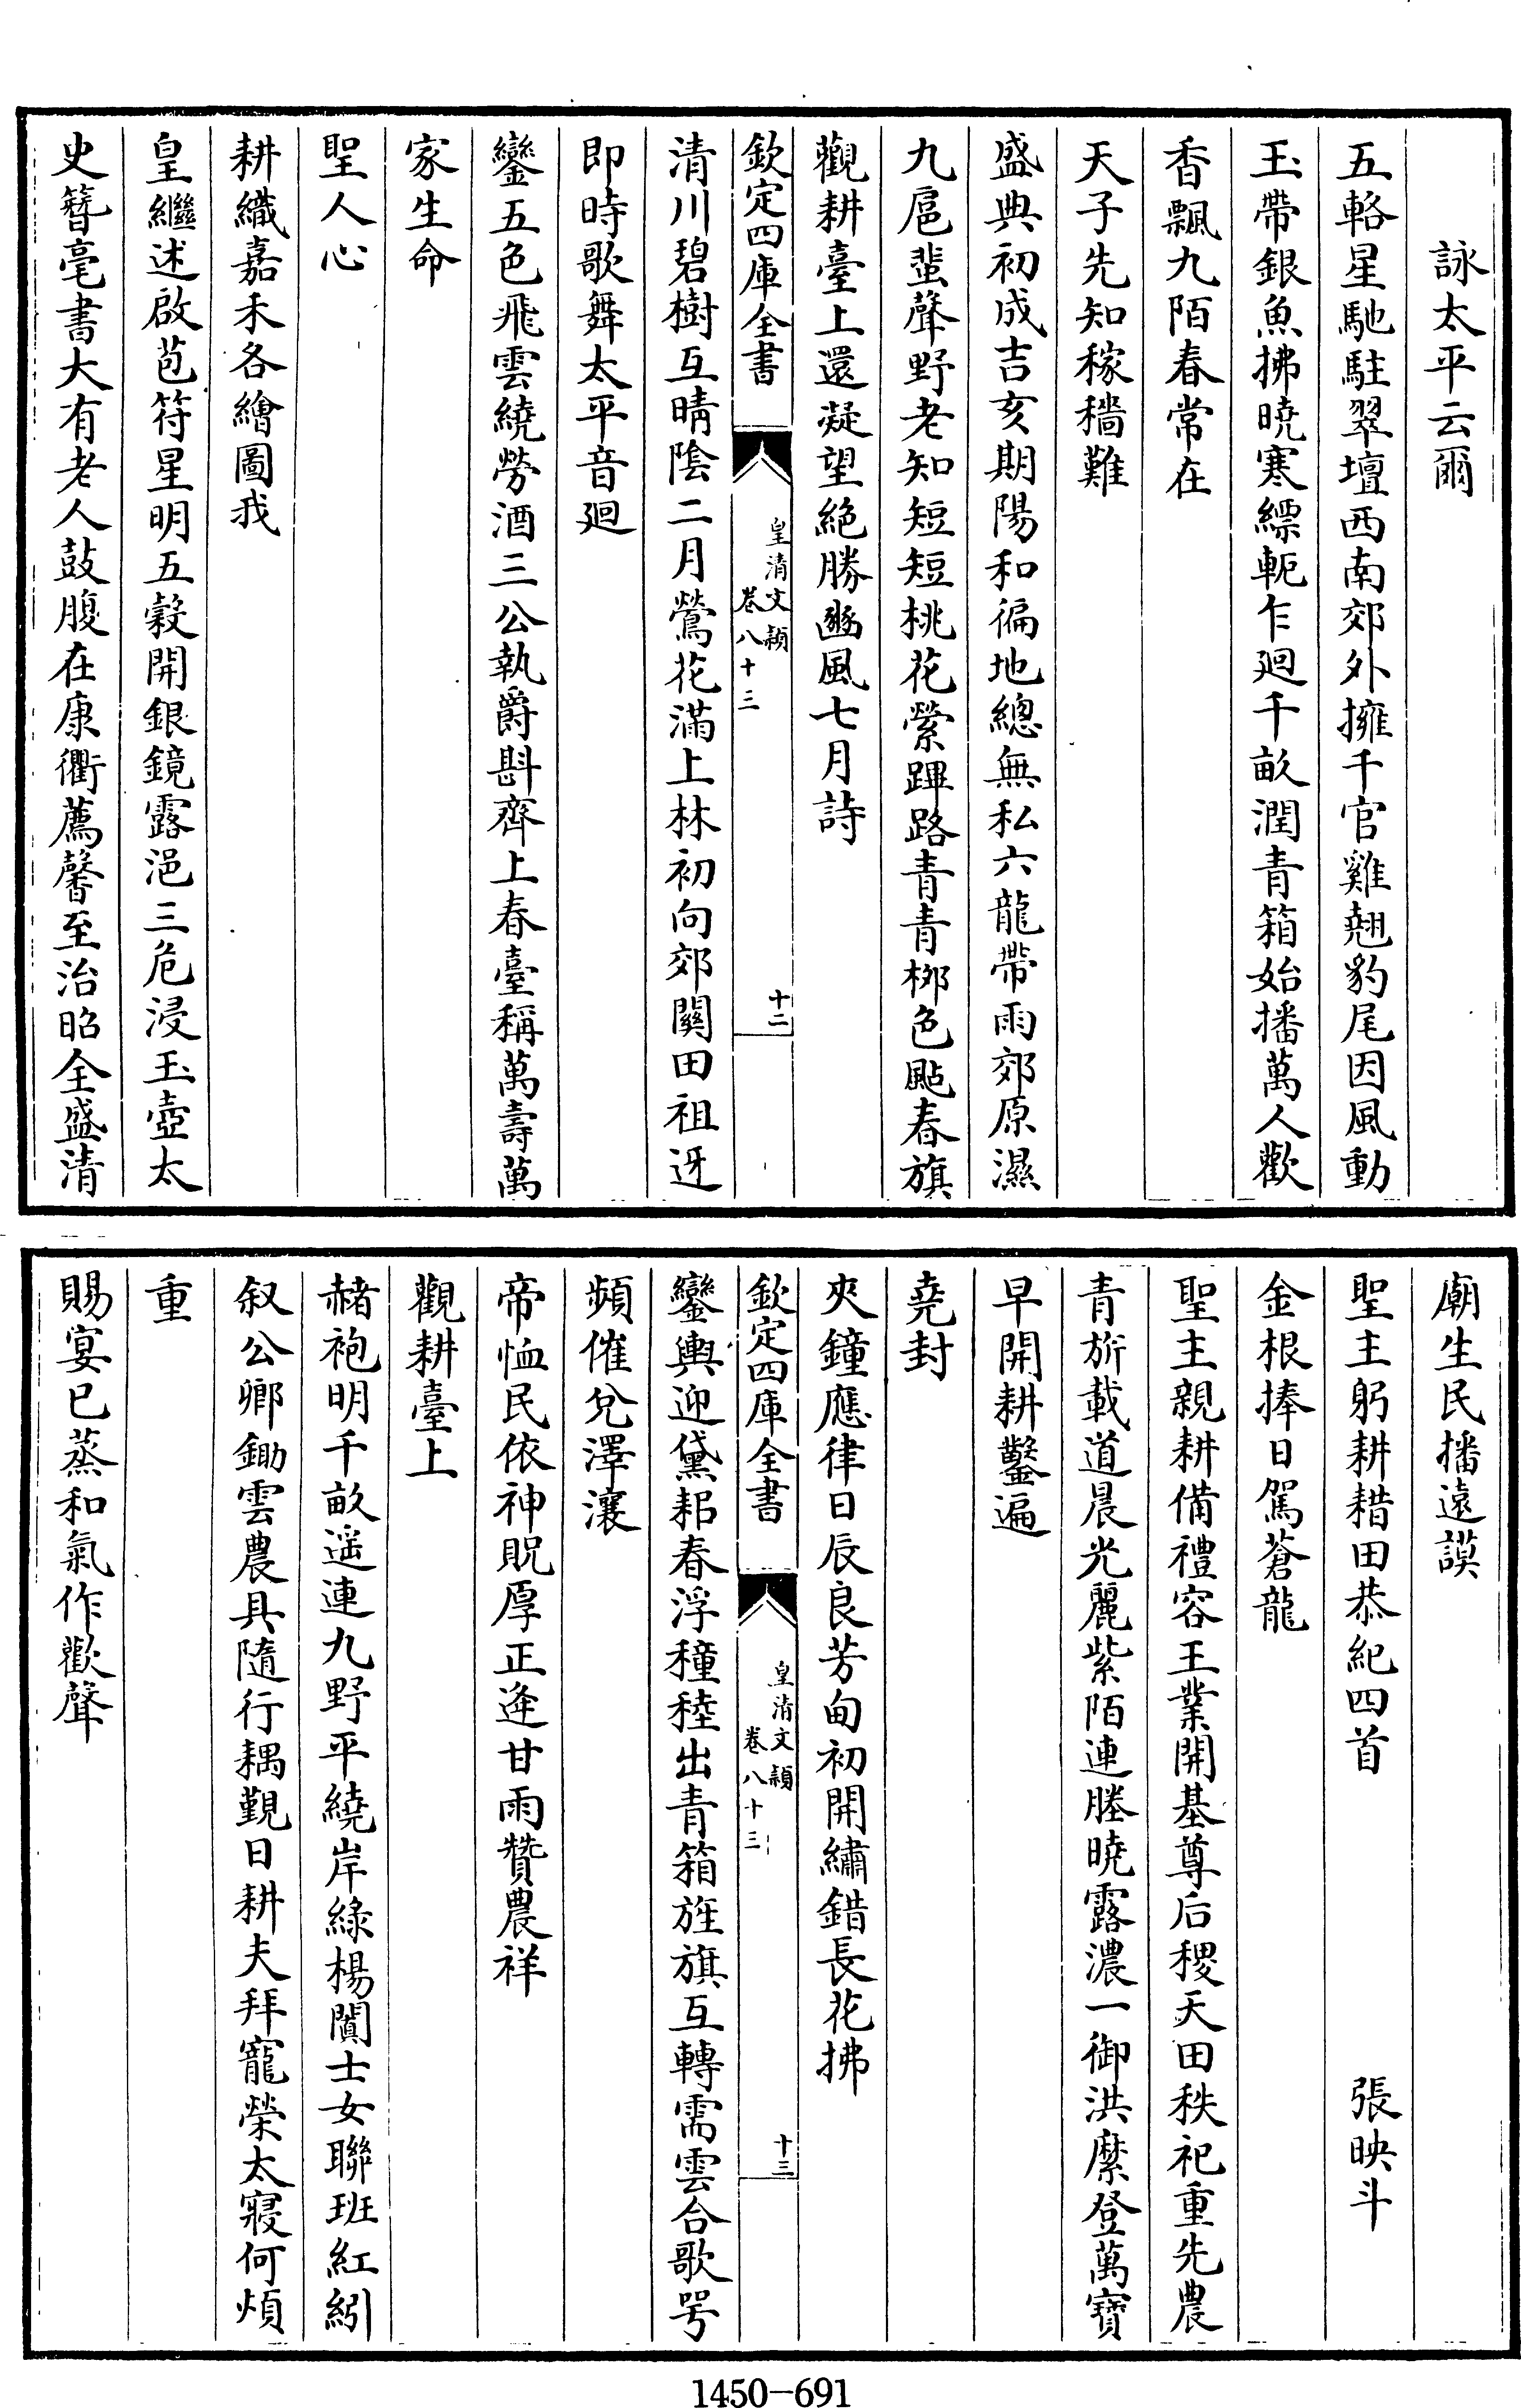 詠太平云爾
五輅星馳駐翠壇西南郊外擁千官雞翹豹尾因風動
玉帶銀魚拂曉寒縹軛乍廻千畝潤青箱始播萬人歡
香飄九陌春常在
天子先知稼穡難
盛典初成吉亥期陽和徧地總無私六龍帶雨郊原濕
九扈蜚聲野老知短短桃花縈蹕路青青桞色颭春旗
觀耕臺上還凝望絶勝豳風七月詩
欽定四庫全書
皇清文穎
卷八十三
十二
清川碧樹互晴陰二月鶯花滿上林初向郊闗田祖迓
即時歌舞太平音廻
鑾五色飛雲繞勞酒三公執爵斟齊上春臺稱萬壽萬
家生命
聖人心
耕織嘉禾各繪圖我
皇繼述啟苞符星明五榖開銀鏡露浥三危浸玉壺太
史簪毫書大有老人鼓腹在康衢薦馨至治昭全盛清
廟生民播遠謨
聖主躬耕耤田恭紀四首 張映斗
金根捧日駕蒼龍
聖主親耕備禮容王業開基尊后稷天田秩祀重先農
青旂載道晨光麗紫陌連塍曉露濃一御洪縻登萬寶
早開耕鑿遍
堯封
夾鐘應律日辰良芳甸初開繡錯長花拂
欽定四庫全書
皇清文穎
卷八十三
十三
鑾輿迎黛耜春浮穜稑出青箱旌旗互轉需雲合歌咢
頻催兌澤瀼
帝恤民依神貺厚正逄甘雨贊農祥
觀耕臺上
赭袍明千畝遥連九野平繞岸綠楊闐士女聯班紅紖
叙公卿鋤雲農具隨行耦覲日耕夫拜寵榮太寢何煩
重
賜宴已蒸和氣作歡聲
1450-691